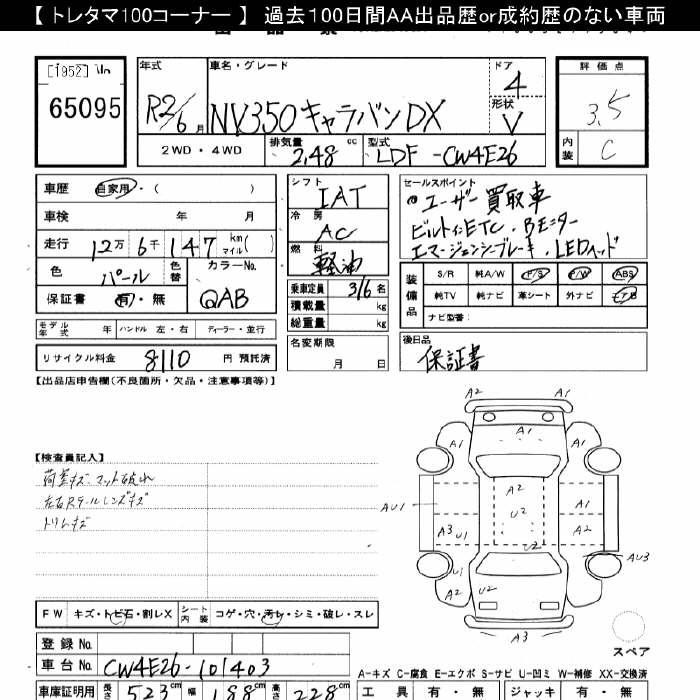 【 トレタマ100コーナー 】 過去100日間AA出品歴or成約歴のない車両
[1952]
65095
年式 車名・グレード ドア 評価点
R2/6月 NV350キャラバンDX 4 3.5
形状 V
2WD・4WD 排気量 2.48 cc 型式 LDF-CW4E26 内装 C
車歴 自家用・( )
車検 年 月
走行 12万6千147 km マイル( )
色 パール 色替 カラーNo. QAB
保証書 有・無
モデル年式 年 ハンドル 左・右 ディーラー・並行
リサイクル料金 8110 円 預託済
シフト IAT
冷房 AC
燃料 軽油
乗車定員 3/6名
積載量 kg
総重量 kg
名変期限
月 日
セールスポイント
ユーザー買取車
ビルトインETC.Bモニター
エマージェンシーブレーキ.LEDヘッド
装備品 S/R 純A/W P/S P/W ABS
純TV 純ナビ 革シート 外ナビ エアB
ナビ型番:
後日品
保証書
【出品店申告欄(不良箇所・欠品・注意事項等)】
【検査員記入】
荷室キズ マット破れ
左右Rテールレンズキズ
トリムキズ
A2
A1
A1 A1
A2
AU1 U2 A1
A3 U1 A2
U2
AU3
U1
A2 U2 A2
A3
スペア
FW キズ・トビ石・割レX シート内装 コゲ・穴・汚レ・シミ・破レ・スレ
登録 No.
車台 No. CW4E26-101403
車庫証明用 長さ 523cm 幅 188cm 高さ 228cm
A-キズ C-腐食 E-エクボ S-サビ U-凹ミ W-補修 XX-交換済
工具 有・無 ジャッキ 有・無